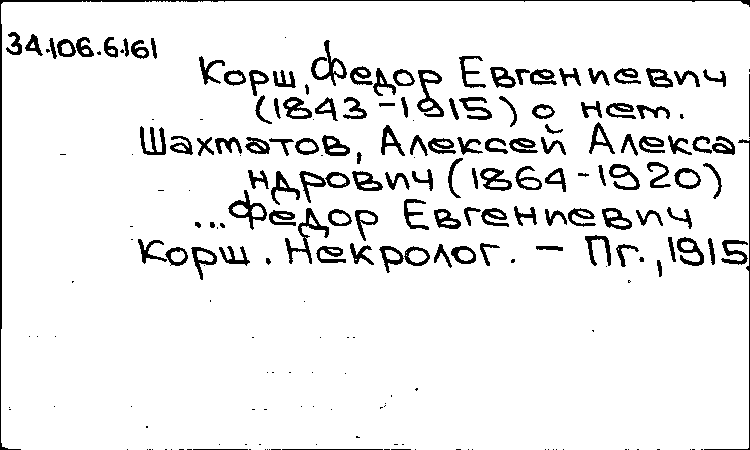 34.106.6.161
Корш, Федор Евгениевич
(1843-1915) о нем.
Шахматов, Алексей Алекса-
ндрович (1864-1920)
...Федор Евгениевич
Корш. Некролог. — Пг., 1915